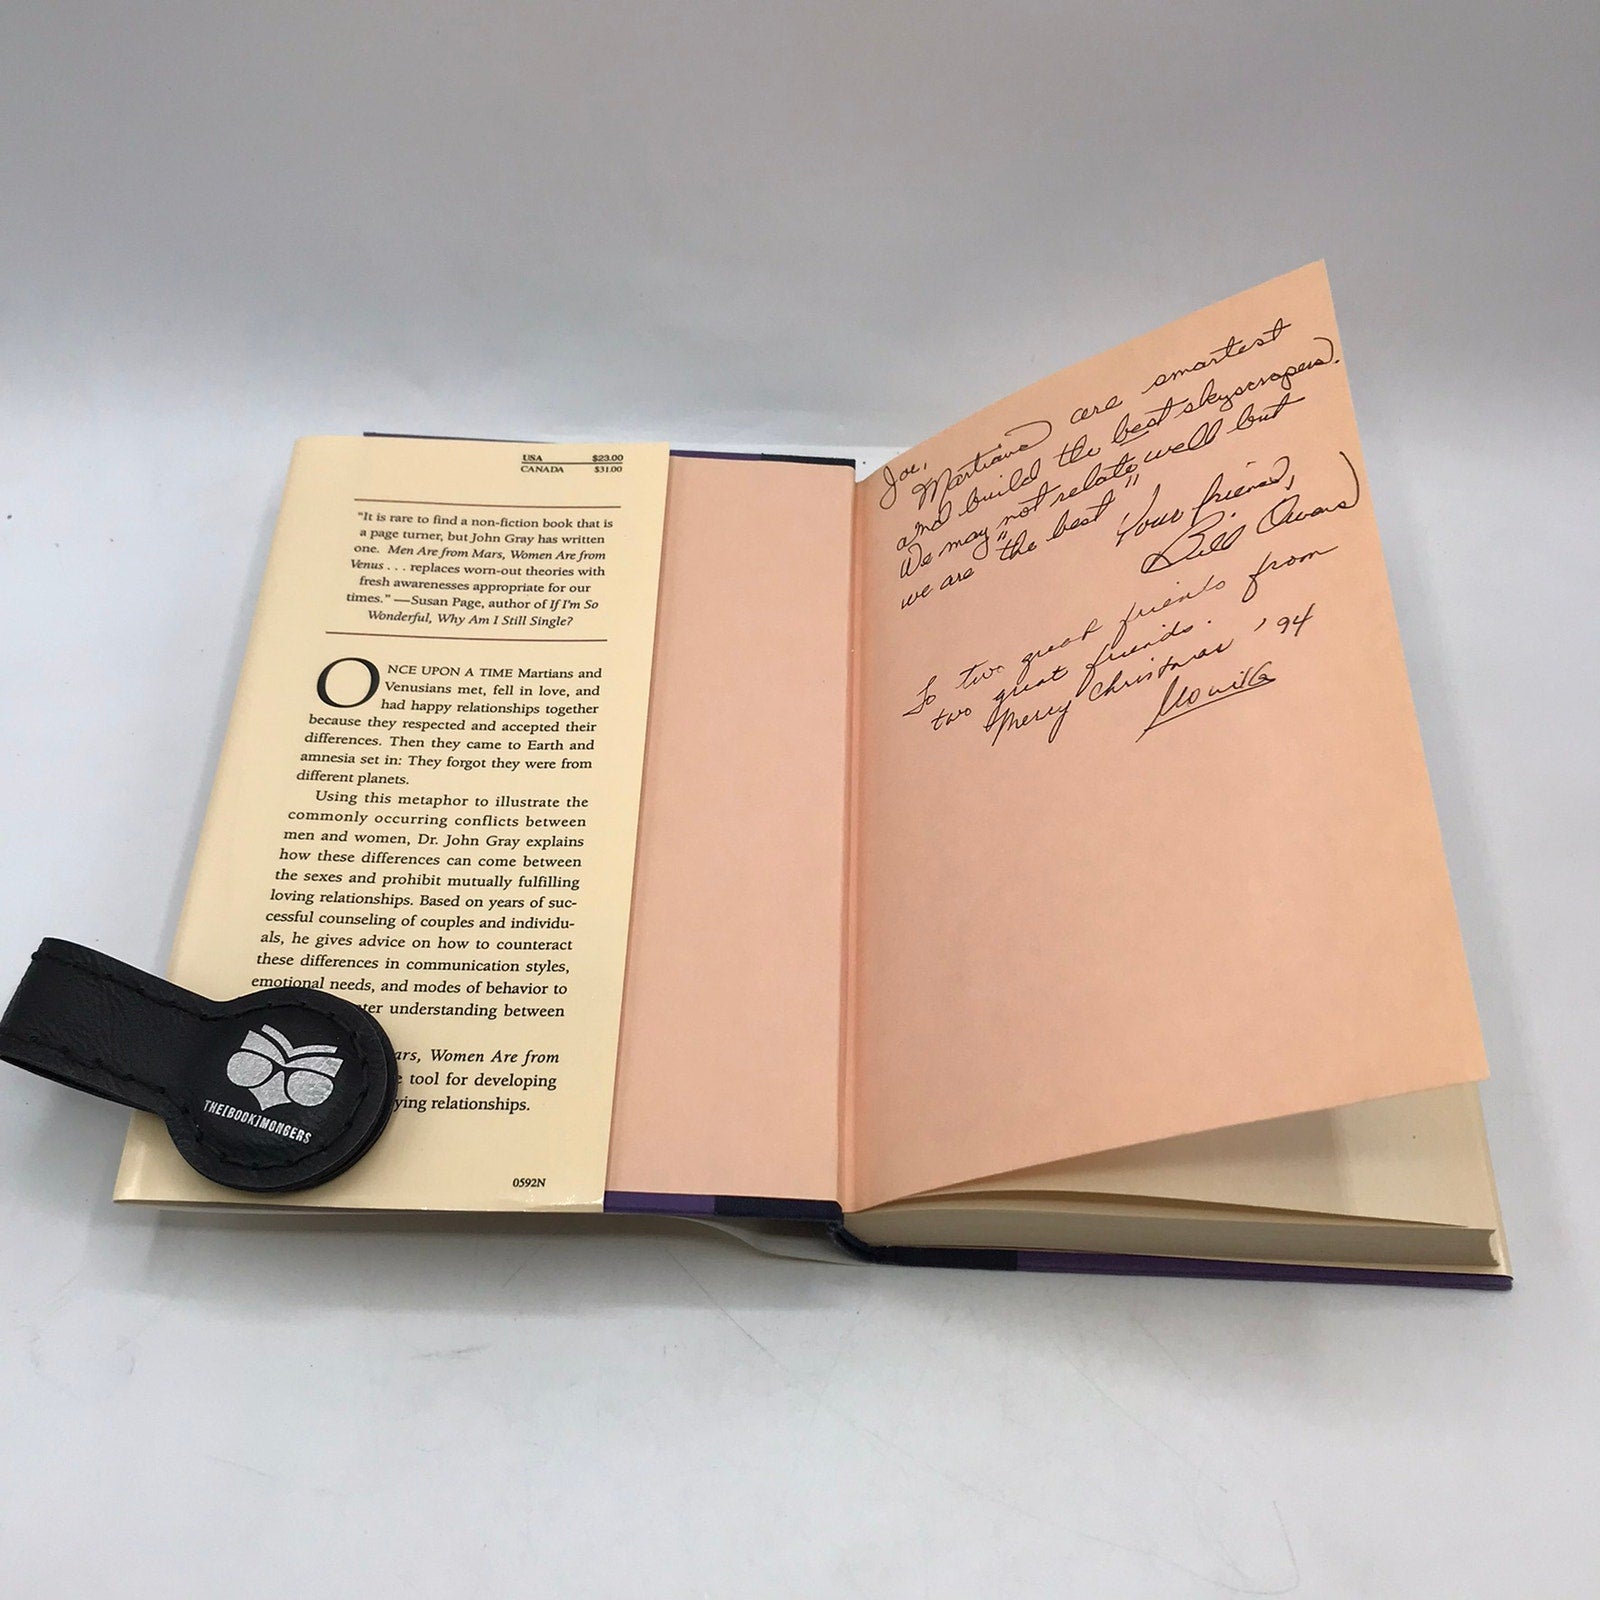 USA $23.00
CANADA $31.00
"It is rare to find a non-fiction book that is
a page turner, but John Gray has written
one. Men Are from Mars, Women Are from
Venus . . . replaces worn-out theories with
fresh awarenesses appropriate for our
times." —Susan Page, author of If I'm So
Wonderful, Why Am I Still Single?
ONCE UPON A TIME Martians and
Venusians met, fell in love, and
had happy relationships together
because they respected and accepted their
differences. Then they came to Earth and
amnesia set in: They forgot they were from
different planets.
Using this metaphor to illustrate the
commonly occurring conflicts between
men and women, Dr. John Gray explains
how these differences can come between
the sexes and prohibit mutually fulfilling
loving relationships. Based on years of suc-
cessful counseling of couples and individu-
als, he gives advice on how to counteract
these differences in communication styles,
emotional needs, and modes of behavior to
understanding between
Women Are from
tool for developing
relationships.
0592N
THE[BOOK]MONGERS
Joe,
Martians are smartest
and build the best skyscrapers.
We may not relate well but
we are "the best"
Your friend,
Bill Owens
To two great friends from
two great friends.
Merry Christmas '94